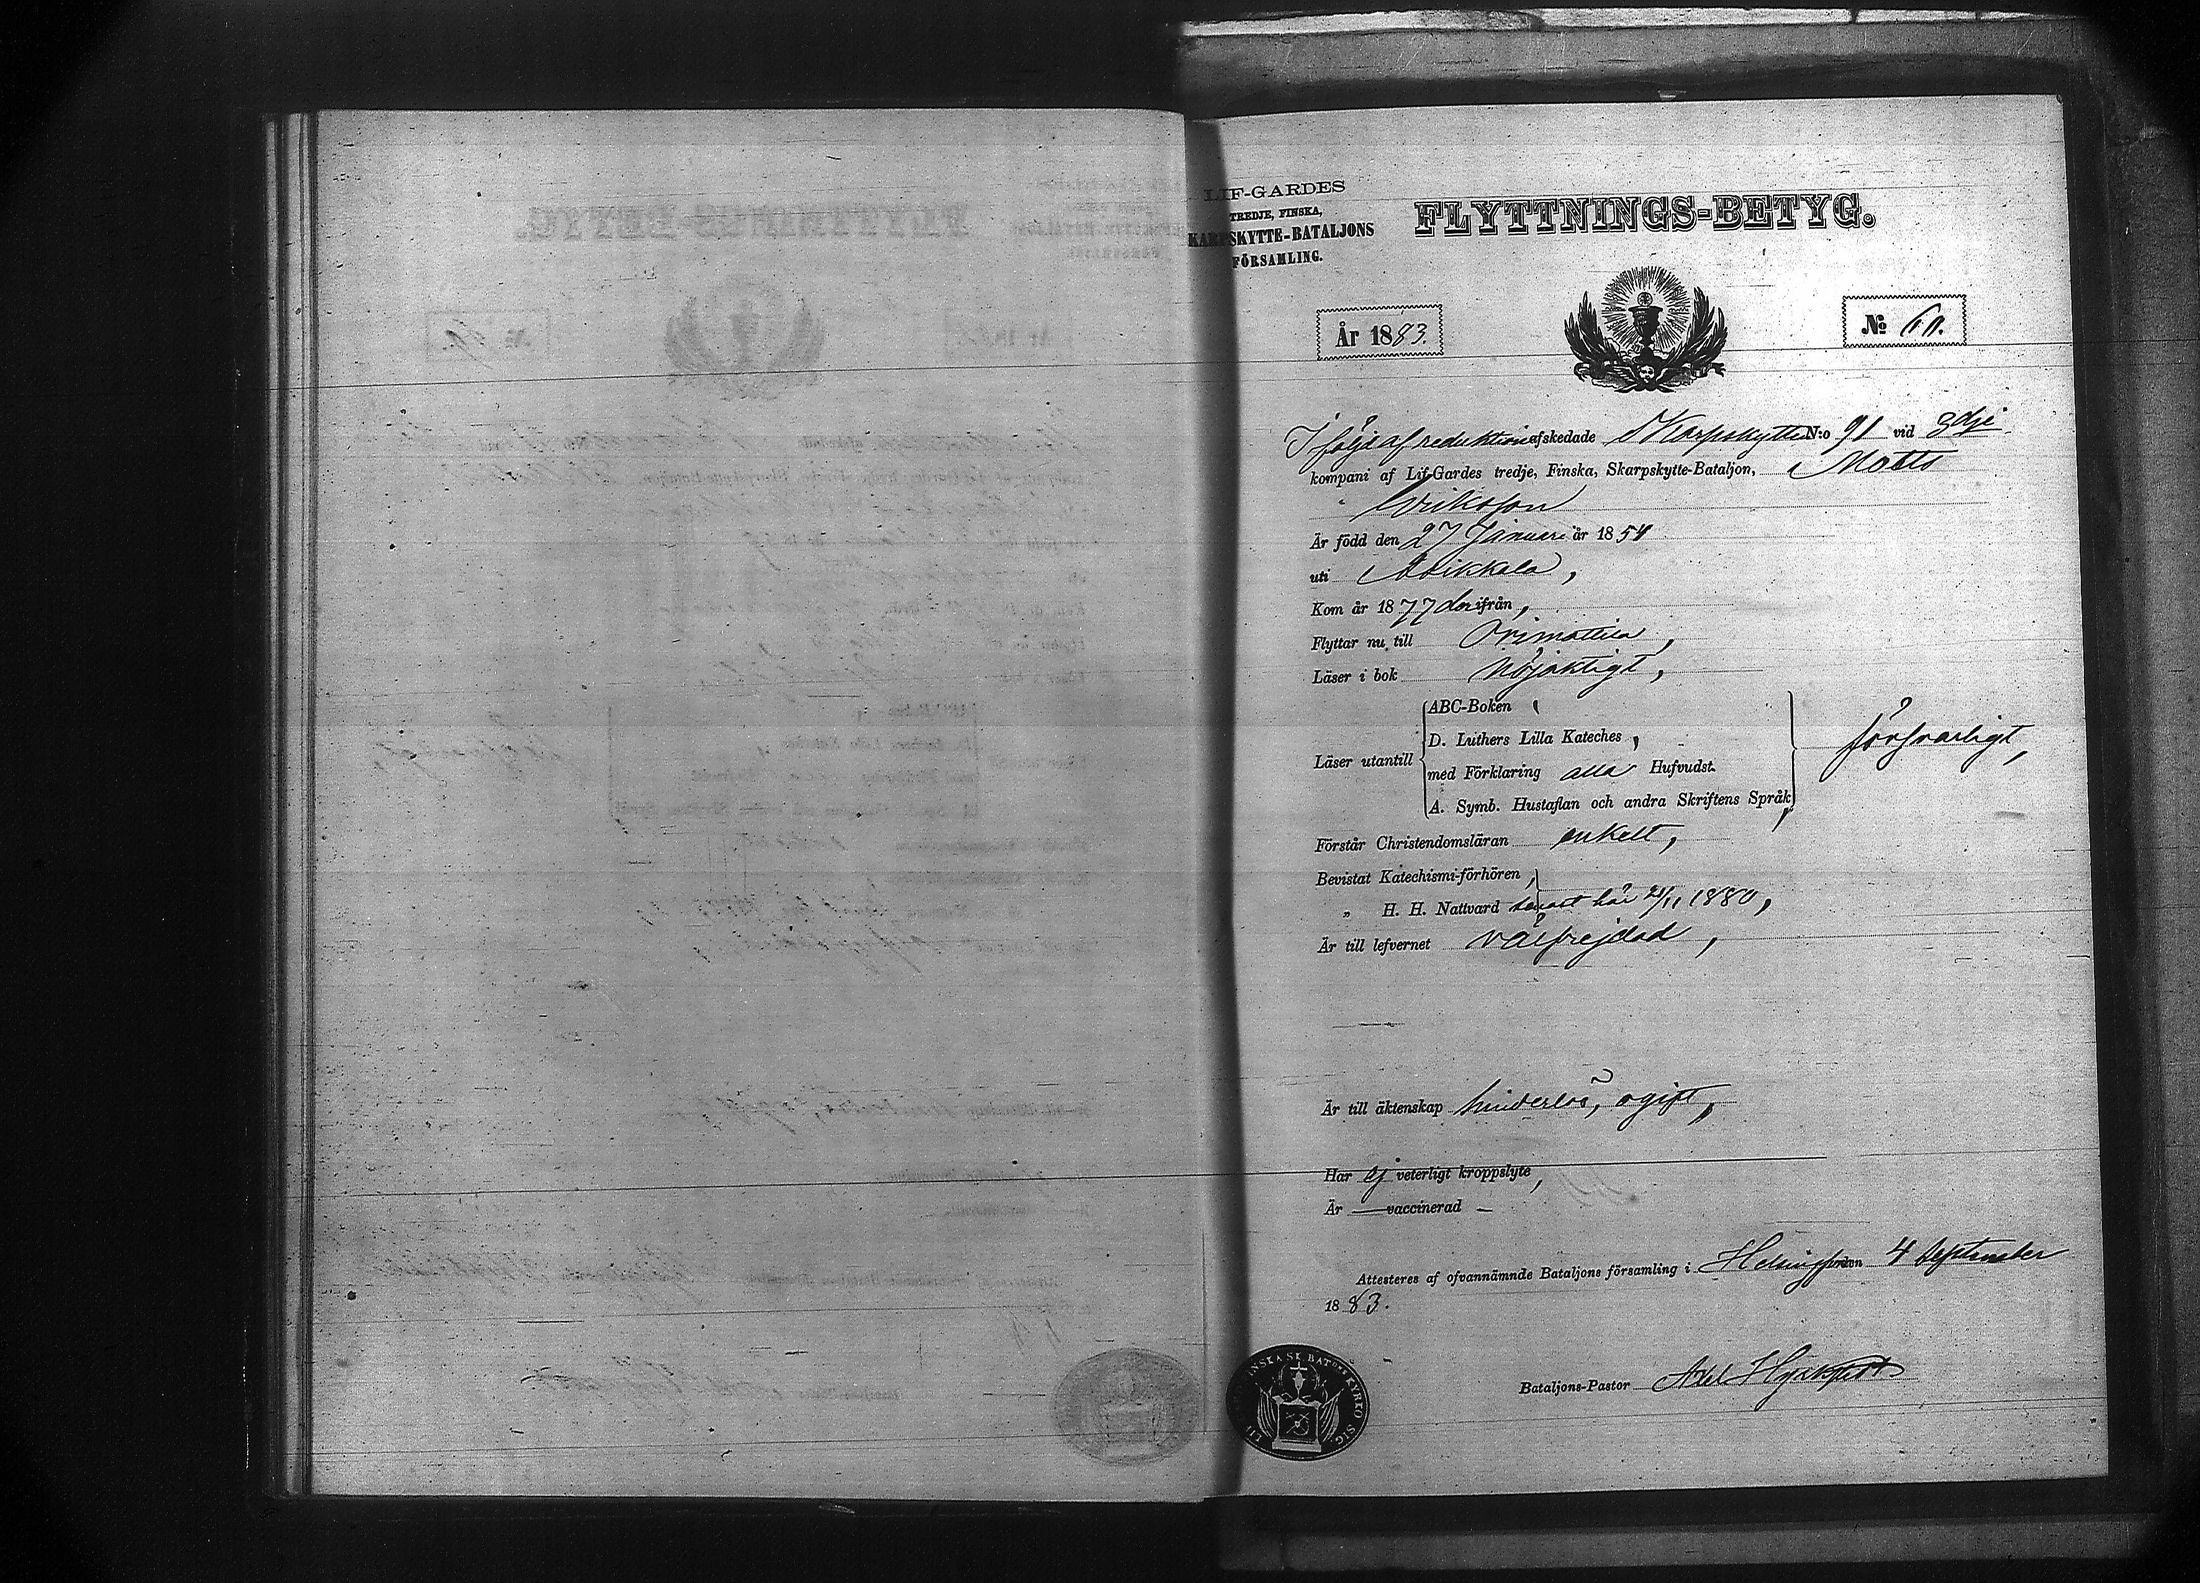 LIF-GARDES
TREDJE, FINSKA,
KARPSKYTTE-BATALJONS
FÖRSAMLING.
FLYTTNINGS-BETYG.
År 1883.
№ 60.
I följe af reduktion afskedade Skarpskytten N:o 91 vid 3dje
kompani af Lif-Gardes tredje, Finska, Skarpskytte-Bataljon, Matts
Eriksson
Är född den 27 Januari år 1854
uti Asikkala,
Kom år 1877 derifrån,
Flyttar nu till Orimattila,
Läser i bok nöjaktigt,
ABC-Boken,
D. Luthers Lilla Kateches,
Läser utantill med Förklaring alla Hufvudst. försvarligt,
A. Symb. Hustaflan och andra Skriftens Språk,
Förstår Christendomsläran enkelt,
Bevistat Katechismi-förhören,
„ H. H. Nattvard senast här 21/11 1880,
Är till lefvernet välfrejdad,
Är till äktenskap hinderlös, ogift,
Har ej veterligt kroppslyte,
Är — vaccinerad —
Attesteres af ofvannämnde Bataljons församling i Helsingfors den 4 September
1883.
Bataljons-Pastor Axel
FINSKA SK. BAT:NS KYRKO SIG.